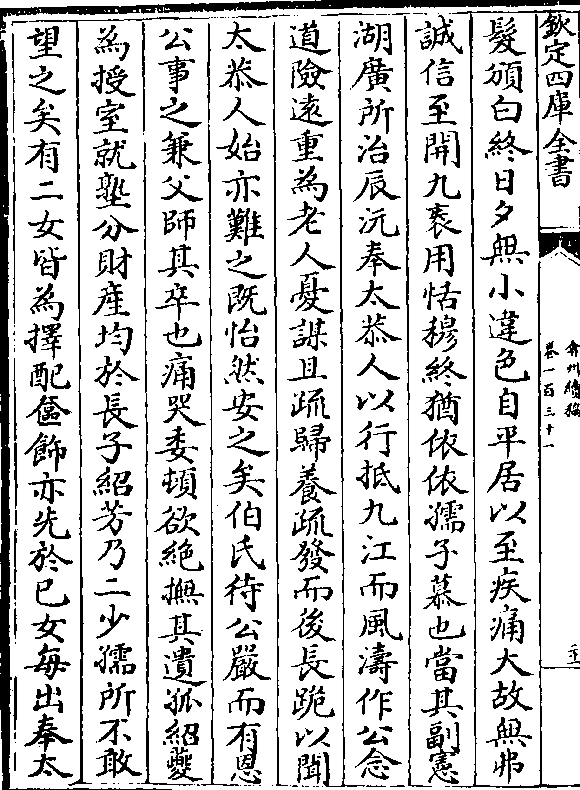 欽定四庫全書
弇州續稿
卷一百三十一
髮頒白終日夕無小違色自平居以至疾痛大故無弗
誠信至開九袠用恬穆終猶依依孺子慕也當其副憲
湖廣所治辰沅奉太恭人以行抵九江而風濤作公念
道險遠重為老人憂謀且疏歸養疏發而後長跪以聞
太恭人始亦難之既怡然安之矣伯氏待公嚴而有恩
公事之兼父師其卒也痛哭委頓欲絶撫其遺孤紹夔
為授室就塾分財產均於長子紹芳乃二少孺所不敢
望之矣有二女皆為擇配奩飾亦先於已女每出奉太